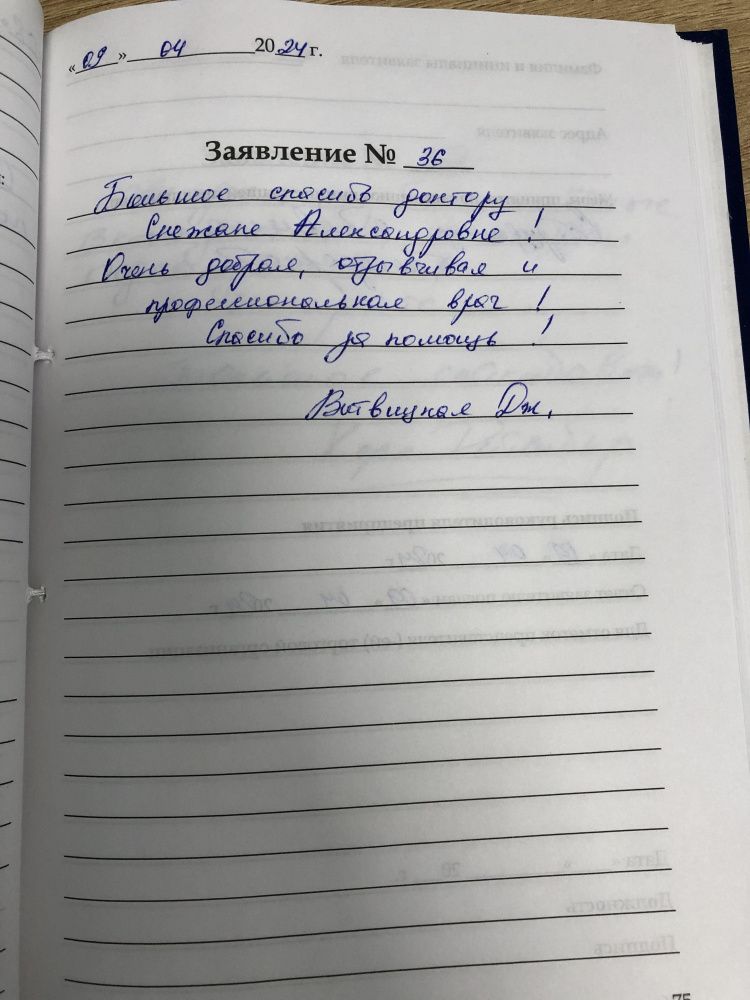 « 09 » 04 2024 г.
Заявление № 36
Большое спасибо доктору
Снежане Александровне !
Очень добрая, отзывчивая и
профессиональная врач !
Спасибо за помощь !
Витвицкая Дж.
75